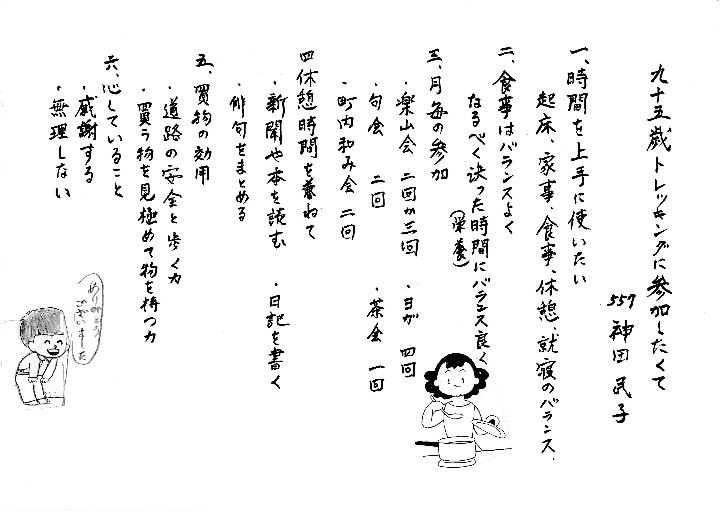 九十五歳トレッキングに参加したくて
557 神田民子
一、時間を上手に使いたい
起床、家事、食事、休憩、就寝のバランス、
二、食事はバランスよく
なるべく決った時間にバランス良く
(栄養)
三、月毎の参加
・楽山会 二回か三回 ・ヨガ 四回
・句会 二回 ・茶会 一回
・町内和み会 二回
四 休憩時間を兼ねて
・新聞や本を読む ・日記を書く
・俳句をまとめる
五、買物の効用
・道路の安全と歩く力
・買う物を見極めて物を持つ力
六、心していること
・感謝する
・無理しない
ありがとう
ございました